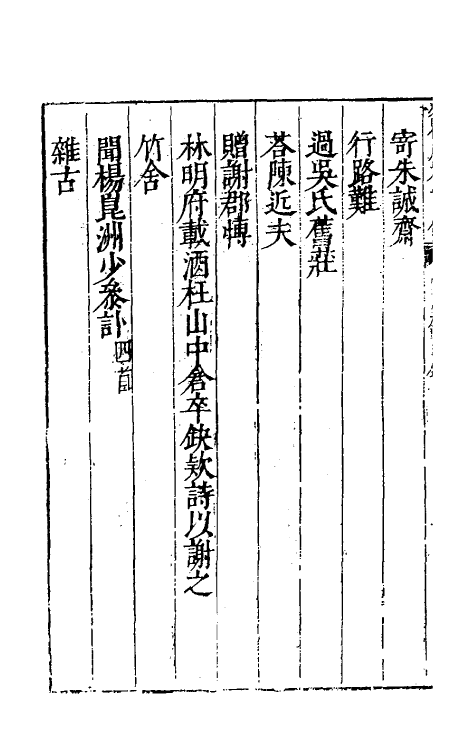 寄朱誠齋
行路難
過吳氏舊莊
荅陳近夫
贈謝郡博
林明府載酒枉山中倉卒缺欵詩以謝之
竹舍
聞楊崑洲少叅訃四首
雜古